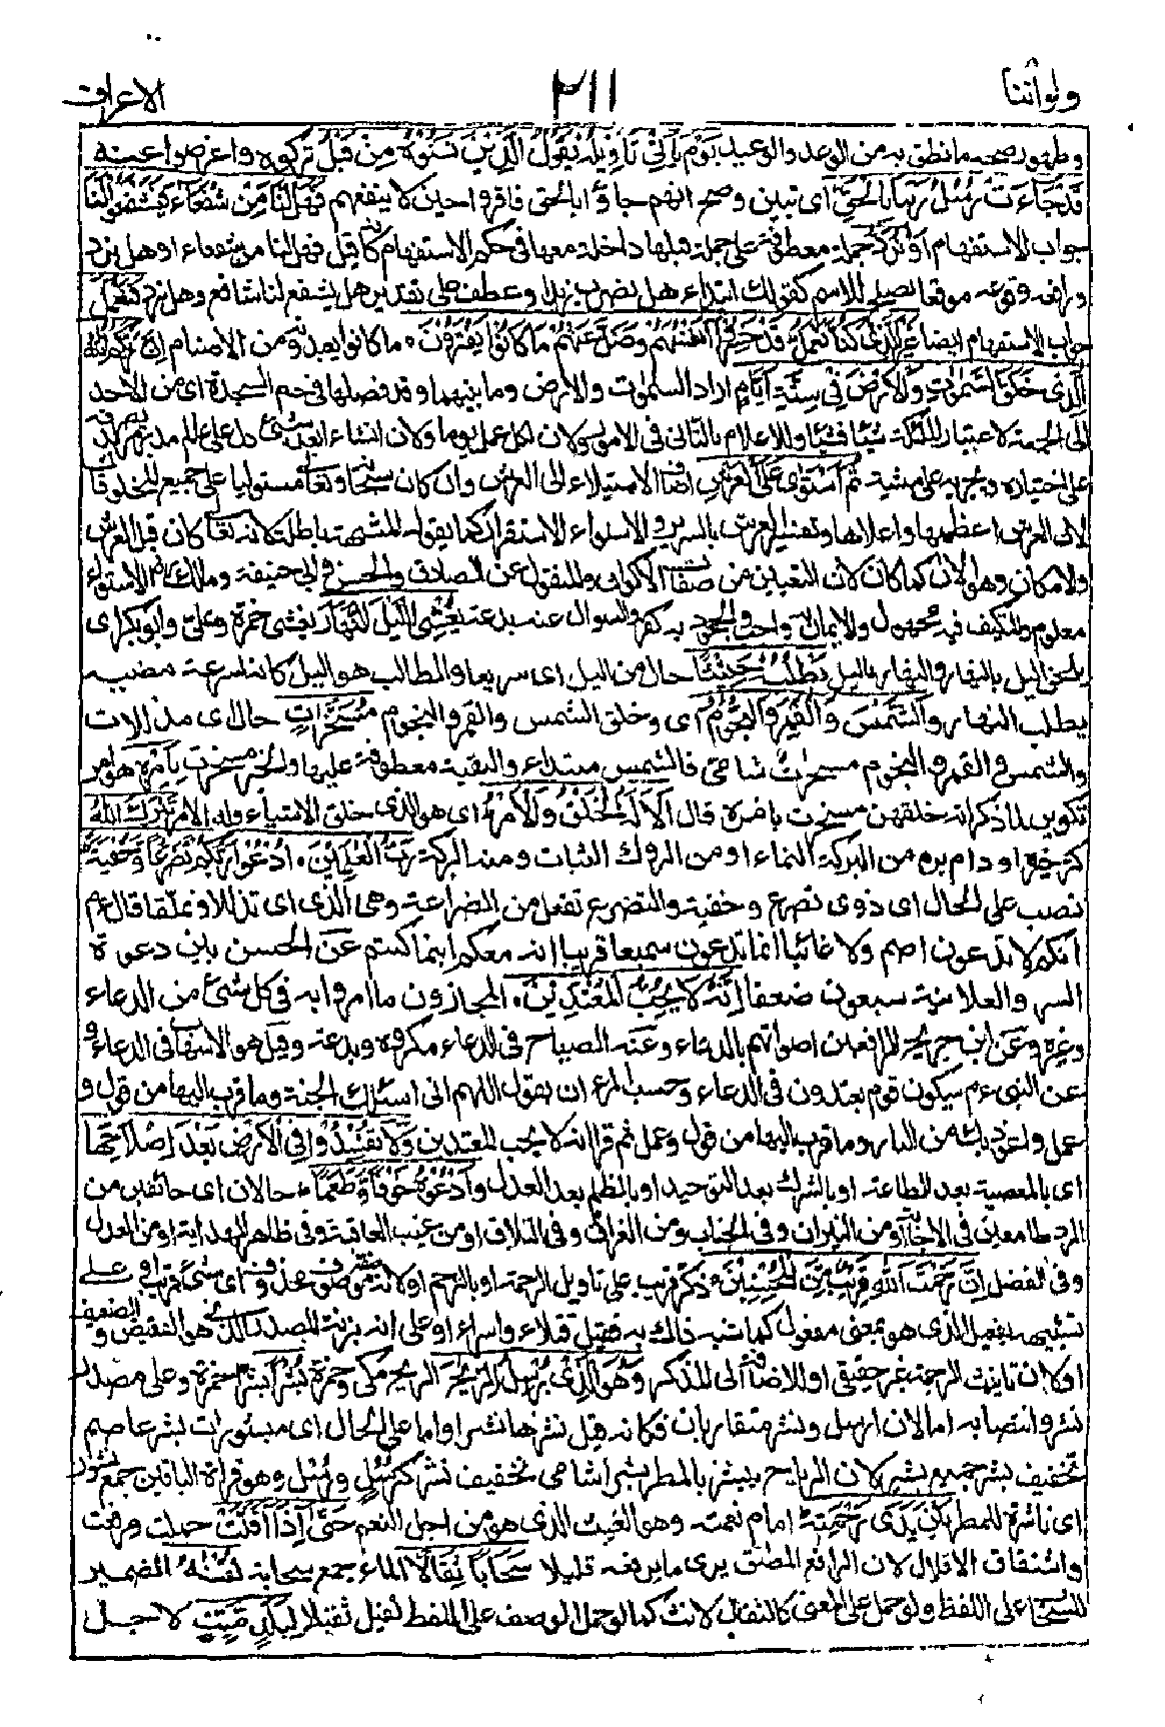 ولو اننا
٢١١
الاعراف
وظهور صحة ما نطق به من الوعد والوعيد يَوْمَ يَأْتِي تَأْوِيلُهُ يَقُولُ الَّذِينَ نَسُوهُ مِنْ قَبْلُ تركوه واعرضوا عنه
قَدْ جَاءَتْ رُسُلُ رَبِّنَا بِالْحَقِّ اى تبين وصح انهم جاؤا بالحق فاقروا حين لا ينفعهم فَهَلْ لَنَا مِنْ شُفَعَاءَ فَيَشْفَعُوا لَنَا
جواب الاستفهام أَوْ نُرَدُّ جملة معطوفة على جملة قبلها داخلة معها فى حكم الاستفهام كانه قيل فهل لنا من شفعاء او هل نرد
ورافعه وقوعه موقعا يصلح للاسم كقولك ابتداء هل يضرب زيد او عطف على تقدير هل يشفع لنا شافع وهل نرد فَنَعْمَلَ
جواب الاستفهام ايضا غَيْرَ الَّذِي كُنَّا نَعْمَلُ قَدْ خَسِرُوا أَنْفُسَهُمْ وَضَلَّ عَنْهُمْ مَا كَانُوا يَفْتَرُونَ ما كانوا يعبدونه من الاصنام إِنَّ رَبَّكُمُ اللَّهُ
الَّذِي خَلَقَ السَّمٰوٰتِ وَالْأَرْضَ فِي سِتَّةِ أَيَّامٍ اراد السموات والارض وما بينهما وقد فصلها فى حم السجدة اى من الاحد
الى الجمعة لاعتبار الملئكة شيئا فشيئا وللاعلام بالتانى فى الامور ولان لكل عمل يوما ولان انشاء شئ بعد شئ ادل على عالم مدبر مريد يصرفه
على اختياره ويجريه على مشيته ثُمَّ اسْتَوٰى عَلَى الْعَرْشِ اضاف الاستيلاء الى العرش وان كان سبحانه وتعالى مستوليا على جميع المخلوقات
لان العرش اعظمها واعلاها وتفسير العرش بالسرير والاستواء بالاستقرار كما يقوله المشبهة باطل لانه تعالى كان قبل العرش
ولا مكان وهو الان كما كان لان التغير من صفات الاكوان والمنقول عن الصادق والحسن وابى حنيفة ومالك ان الاستواء
معلوم والتكييف فيه مجهول والايمان به واجب والجحود به كفر والسوال عنه بدعة يُغْشِي اللَّيْلَ النَّهَارَ يغشى حمزة وعلى وابو بكر اى
يلحق الليل بالنهار والنهار بالليل يَطْلُبُهُ حَثِيثًا حال من الليل اى سريعا والطالب هو الليل كانه لسرعة مضيه
يطلب النهار وَالشَّمْسَ وَالْقَمَرَ وَالنُّجُومَ اى وخلق الشمس والقمر والنجوم مُسَخَّرَاتٍ حال اى مذللات
والشمس والقمر والنجوم مسخرات شامى فالشمس مبتداء والبقية معطوفة عليها والخبر مسخرات بِأَمْرِهِ هو امر
تكوين لما ذكر انه خلقهن مسخرات بامره قال أَلَا لَهُ الْخَلْقُ وَالْأَمْرُ اى هو الذى خلق الاشياء وله الامر تَبٰرَكَ اللَّهُ
كثر خيره او دام بره من البركة النماء او من البروك الثبات ومنه البركة رَبُّ الْعٰلَمِينَ ادْعُوا رَبَّكُمْ تَضَرُّعًا وَخُفْيَةً
نصب على الحال اى ذوى تضرع وخفية والتضرع تفعل من الضراعة وهى الذل اى تذللا وتملقا قال عم
انكم لا تدعون اصم ولا غائبا انما تدعون سميعا قريبا انه معكم اينما كنتم عن الحسن بين دعوة
السر والعلانية سبعون ضعفا إِنَّهُ لَا يُحِبُّ الْمُعْتَدِينَ المجاوزين ما امروا به فى كل شئ من الدعاء
وغيره وعن ابن جريج الرافعين اصواتهم بالدعاء وعنه الصياح فى الدعاء مكروه وبدعة وقيل هو الاسهاب فى الدعاء و
عن النبى عم سيكون قوم يعتدون فى الدعاء وحسب المرء ان يقول اللهم انى اسئلك الجنة وما قرب اليها من قول و
عمل واعوذ بك من النار وما قرب اليها من قول وعمل ثم قرا انه لا يحب المعتدين وَلَا تُفْسِدُوا فِي الْأَرْضِ بَعْدَ إِصْلَاحِهَا
اى بالمعصية بعد الطاعة او بالشرك بعد التوحيد او بالظلم بعد العدل وَادْعُوهُ خَوْفًا وَطَمَعًا حالان اى خائفين من
الرد طامعين فى الاجابة او من النيران وفى الجنان ومن الفراق وفى التلاق او من غيب العاقبة وفى ظاهر الهداية او من العدل
وفى الفضل إِنَّ رَحْمَتَ اللَّهِ قَرِيبٌ مِنَ الْمُحْسِنِينَ ذكر قريب على تاويل الرحمة او بالترحم او لانه صفة موصوف محذوف اى شئ قريب او على
تشبيهه بفعيل الذى هو بمعنى مفعول كما شبه ذاك به فقيل قتلاء واسراء او على انه بزنة المصدر الذى هو النقيض والضعيف
او لان تانيث الرحمة غير حقيقى او للاضافة الى المذكر وَهُوَ الَّذِي يُرْسِلُ الرِّيٰحَ الريح مكى وحمزة وعلى بُشْرًا نشرا حمزة وعلى مصدر
نشر وانتصابه اما لان ارسل ونشر متقاربان فكانه قيل نشرها نشرا واما على الحال اى منشورات بشرا عاصم
تخفيف بشر جمع بشير لان الرياح تبشر بالمطر نشرا شامى تخفيف نشر كرسل ورسل وهو قراءة الباقين جمع نشور
اى ناشرة للمطر بَيْنَ يَدَيْ رَحْمَتِهِ امام نعمته وهو الغيث الذى هو من اجل النعم حَتَّى إِذَا أَقَلَّتْ حملت ورفعت
واشتقاق الاقلال لان الرافع المطيق يرى ما يرفعه قليلا سَحَابًا ثِقَالًا بالماء جمع سحابة سُقْنٰهُ الضمير
للسحاب على اللفظ ولو حمل على المعنى كالثقال لانث كما لو حمل الوصف على اللفظ لقيل ثقيلا لِبَلَدٍ مَيِّتٍ لاجل